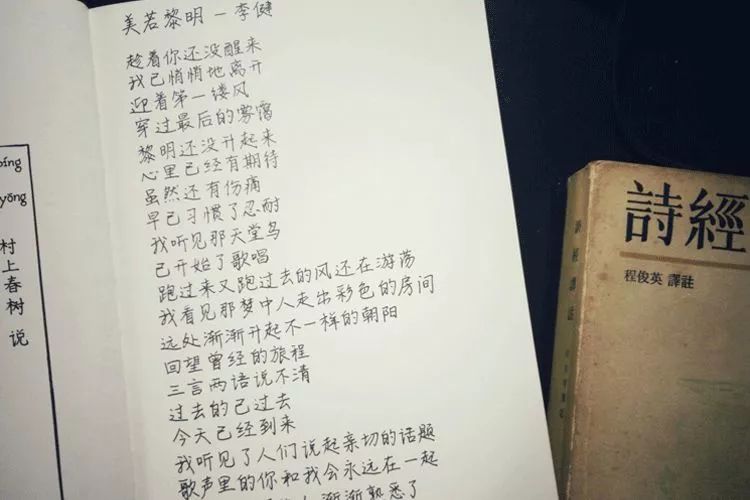 美若黎明 - 李健
趁着你还没醒来
我已悄悄地离开
迎着第一缕风
穿过最后的雾霭
黎明还没升起来
心里已经有期待
虽然还有伤痛
早已习惯了忍耐
我听见那天堂鸟
已开始了歌唱
跑过来又跑过去的风还在游荡
我看见那梦中人走出彩色的房间
远处渐渐升起不一样的朝阳
回望曾经的旅程
三言两语说不清
过去的已过去
今天已经到来
我听见了人们说起亲切的话题
歌声里的你和我会永远在一起
渐渐熟悉了
bíng
yōng
村上春树说
詩經
程俊英 譯註
詩經譯註